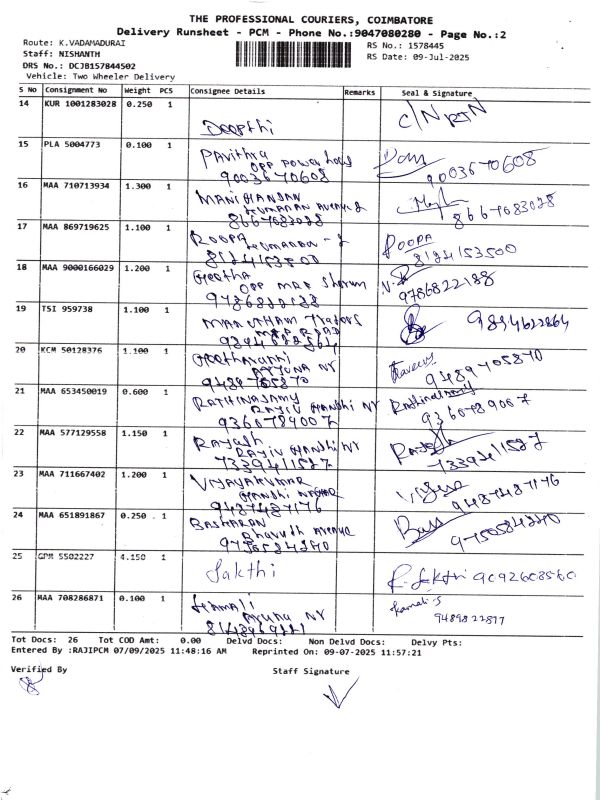 THE PROFESSIONAL COURIERS, COIMBATORE
Delivery Runsheet - PCM - Phone No.:9047080280 - Page No.:2
Route: K.VADAMADURAI
RS No.: 1578445
Staff: NISHANTH
RS Date: 09-Jul-2025
DRS No.: DCJB157844502
Vehicle: Two Wheeler Delivery
S No Consignment No Weight PCS Consignee Details Remarks Seal & Signature
14 KUR 1001283028 0.250 1
Deepthi
C/N RTN
15 PLA 5004773 0.100 1
Pavithra
opp power
9003670608
9003670608
16 MAA 710713934 1.300 1
MANIKANDAN
KUMARAN Avenue
8667683028
8667683028
17 MAA 869719625 1.100 1
ROOPA
KUMARAN
8124153500
ROOPA
8124153500
18 MAA 9000166029 1.200 1
Geetha
opp
9786822188
9786822188
19 TSI 959738 1.100 1
Traders
9894622864
20 KCM 50128376 1.100 1
9489705870
9489705870
21 MAA 653450019 0.600 1
RATHINASAMY
RAJIV GANDHI Nr
9360789007
9360789007
22 MAA 577129558 1.150 1
RAJESH
RAJIV GANDHI Nr
7339411587
7339411587
23 MAA 711667402 1.200 1
VIJAYAKUMAR
GANDHI NAGAR
9487487176
9487487176
24 MAA 651891867 0.250 1
BASKARAN
Avenue
9750584240
25 GPM 5502227 4.150 1
Sakthi
R. Sakthi
26 MAA 708286871 0.100 1
Aruna Nr
Kamali.S
9489822877
Tot Docs: 26 Tot COD Amt: 0.00 Delvd Docs: Non Delvd Docs: Delvy Pts:
Entered By :RAJIPCM 07/09/2025 11:48:16 AM Reprinted On: 09-07-2025 11:57:21
Verified By Staff Signature